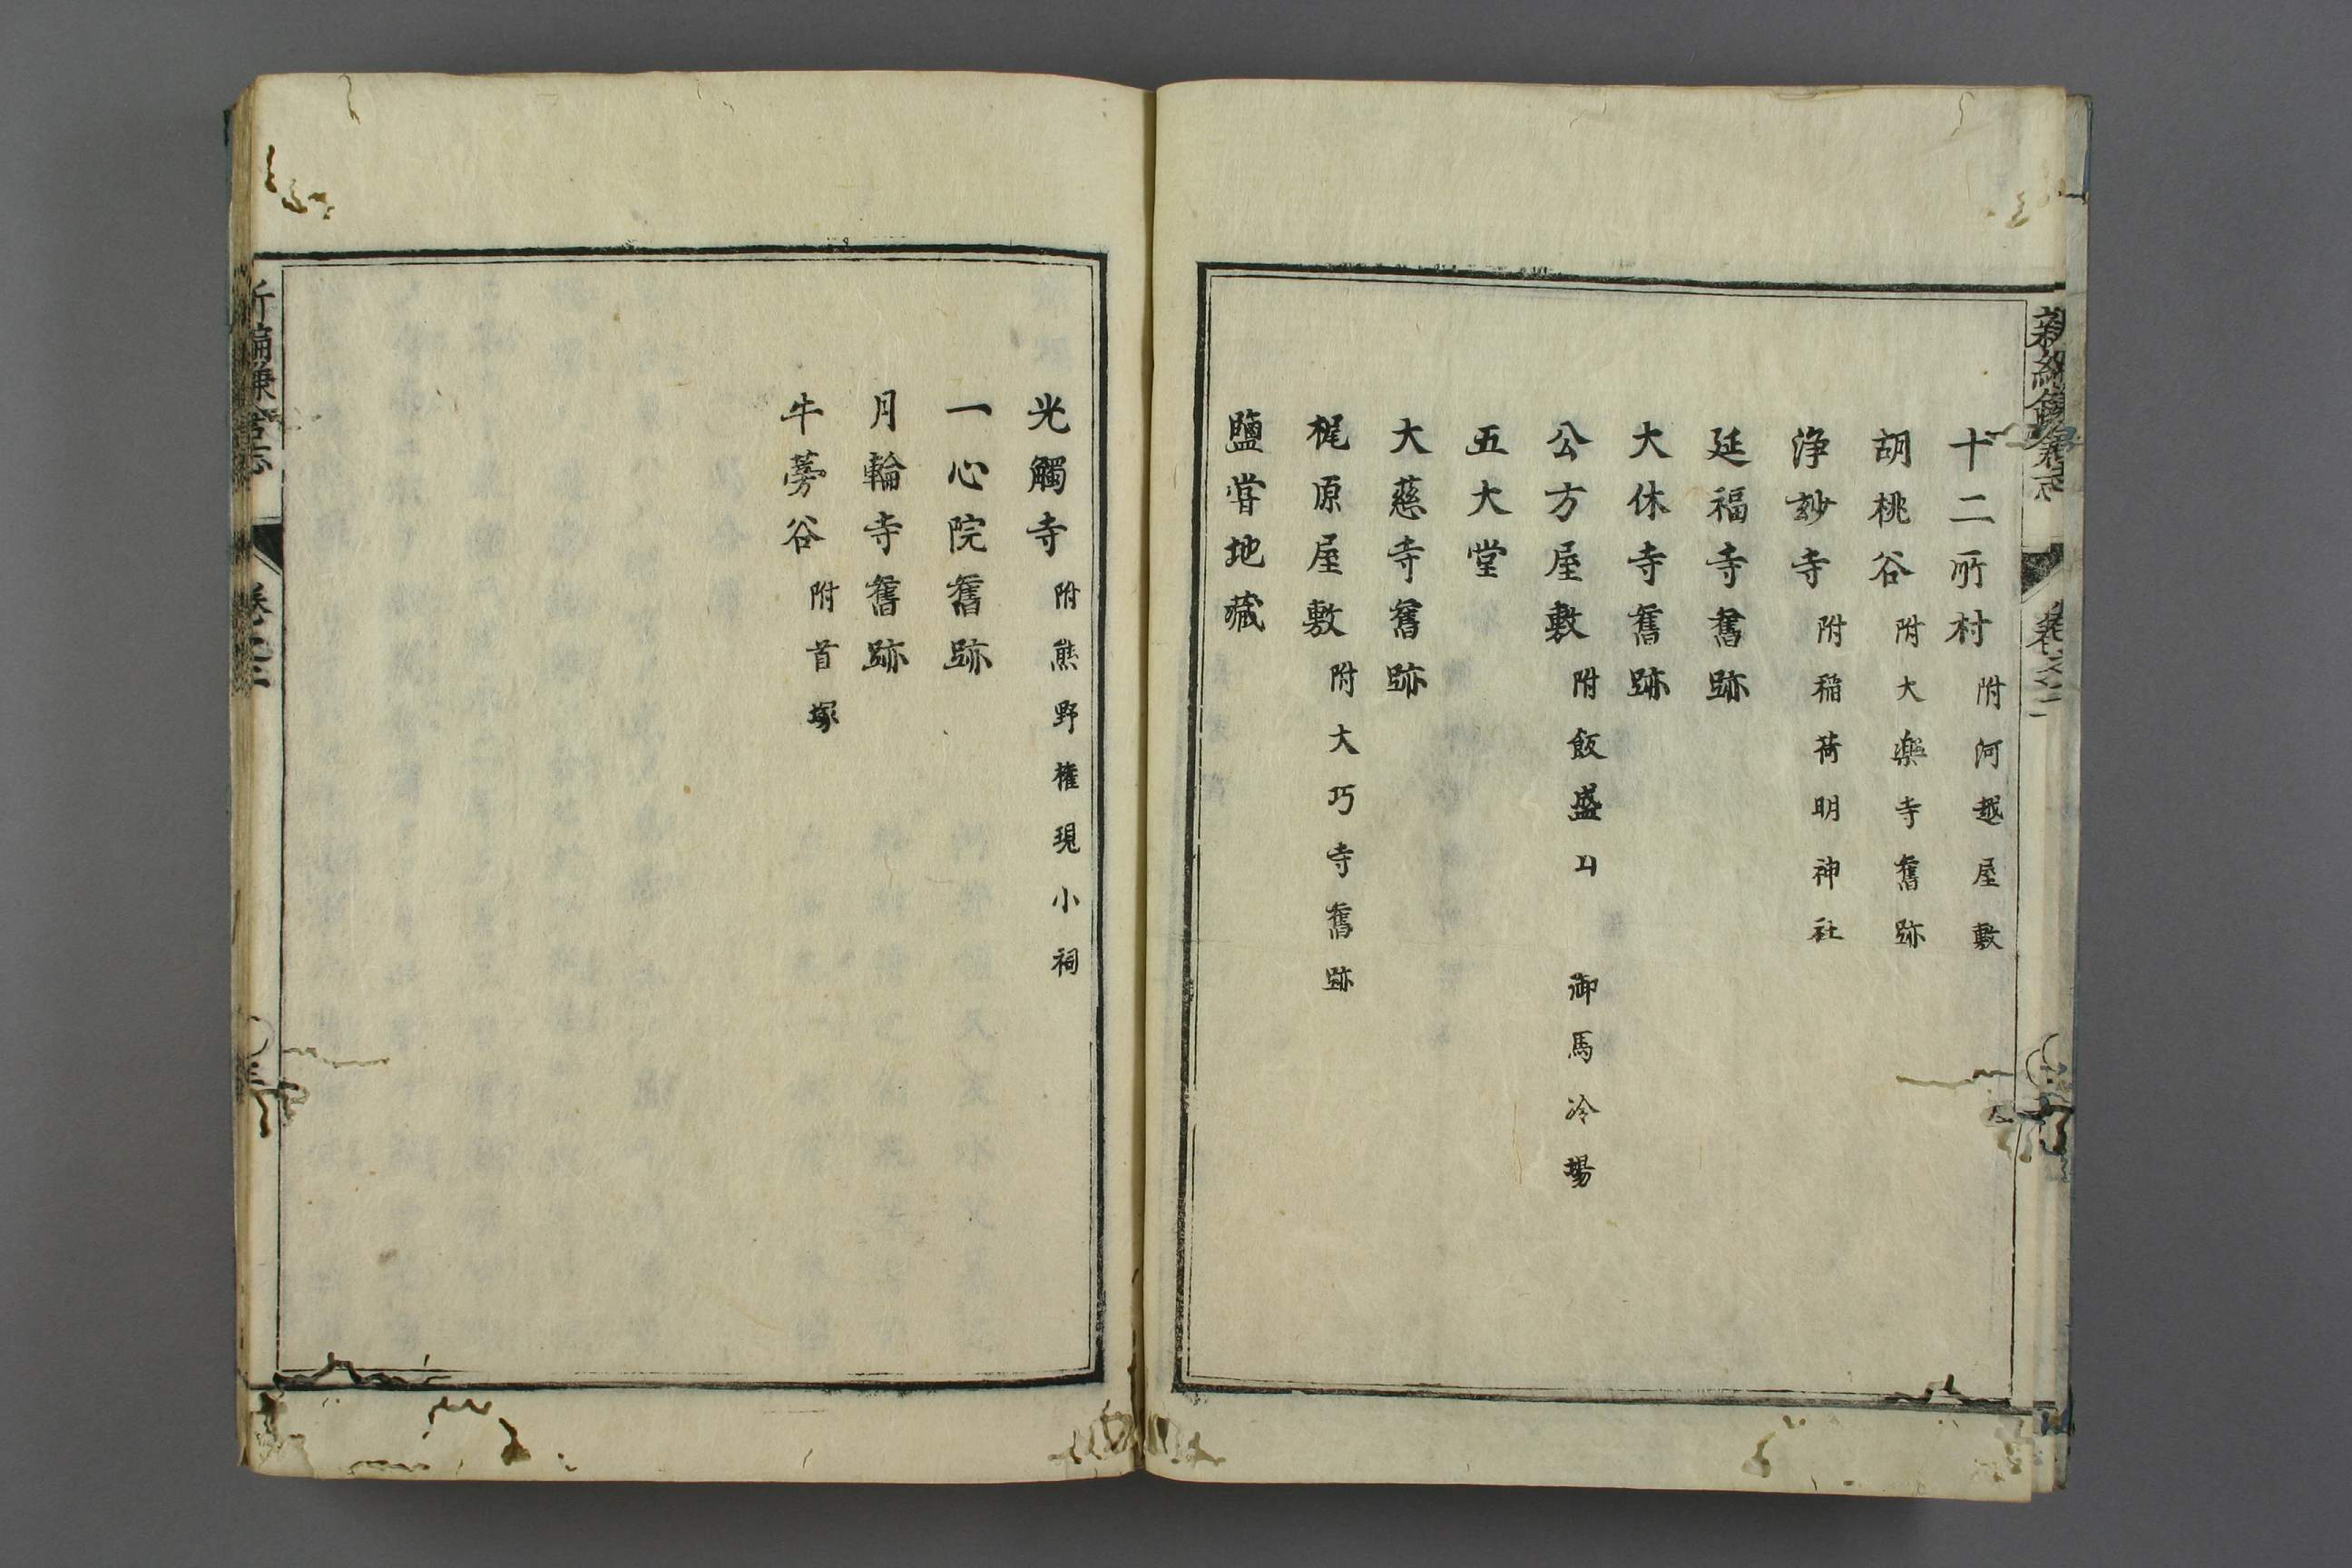 十二所村 附河越屋敷
胡桃谷 附大樂寺舊跡
浄妙寺 附稲荷明神社
延福寺舊跡
大休寺舊跡
公方屋敷 附飯盛山 御馬冷場
五大堂
大慈寺舊跡
梶原屋敷 附大巧寺舊跡
鹽甞地藏
光觸寺 附熊野権現小祠
一心院舊跡
月輪寺舊跡
牛蒡谷 附首塚
新編鎌倉志 卷之二